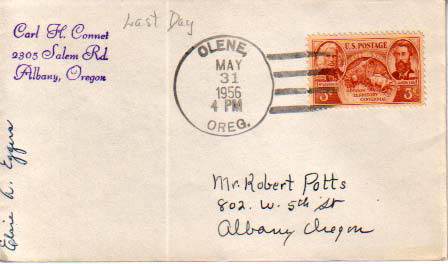 Carl H. Connet
2305 Salem Rd.
Albany, Oregon
Last Day
OLENE,
MAY
31
1956
4 PM
OREG.
U.S. POSTAGE
3¢ 3¢
OREGON
TERRITORY
CENTENNIAL
Mr. Robert Potts
802. W. 5th St
Albany Oregon
Claire R. Eggers